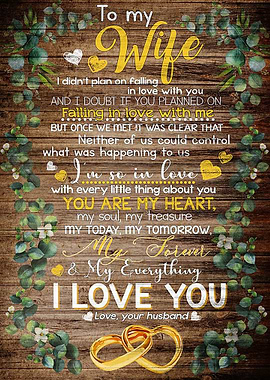 To my
Wife
I didn't plan on falling
in love with you
AND I DOUBT IF YOU PLANNED ON
Falling in love with me
BUT ONCE WE MET IT WAS CLEAR THAT
Neither of us could control
what was happening to us
I'm so in love
with every little thing about you
YOU ARE MY HEART,
my soul, my treasure
MY TODAY, MY TOMORROW,
My Forever
& My Everything
I LOVE YOU
Love, your husband